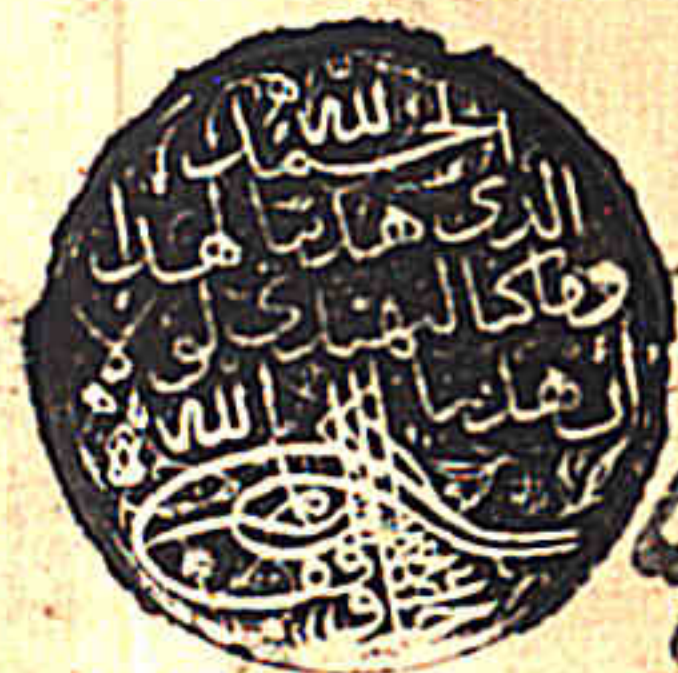 الحمد لله
الذى هدينا لهذا
وما كنا لنهتدى لولا
أن هدينا الله
وقف